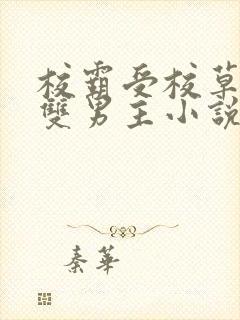 校霸受校草
雙男主小說
秦華